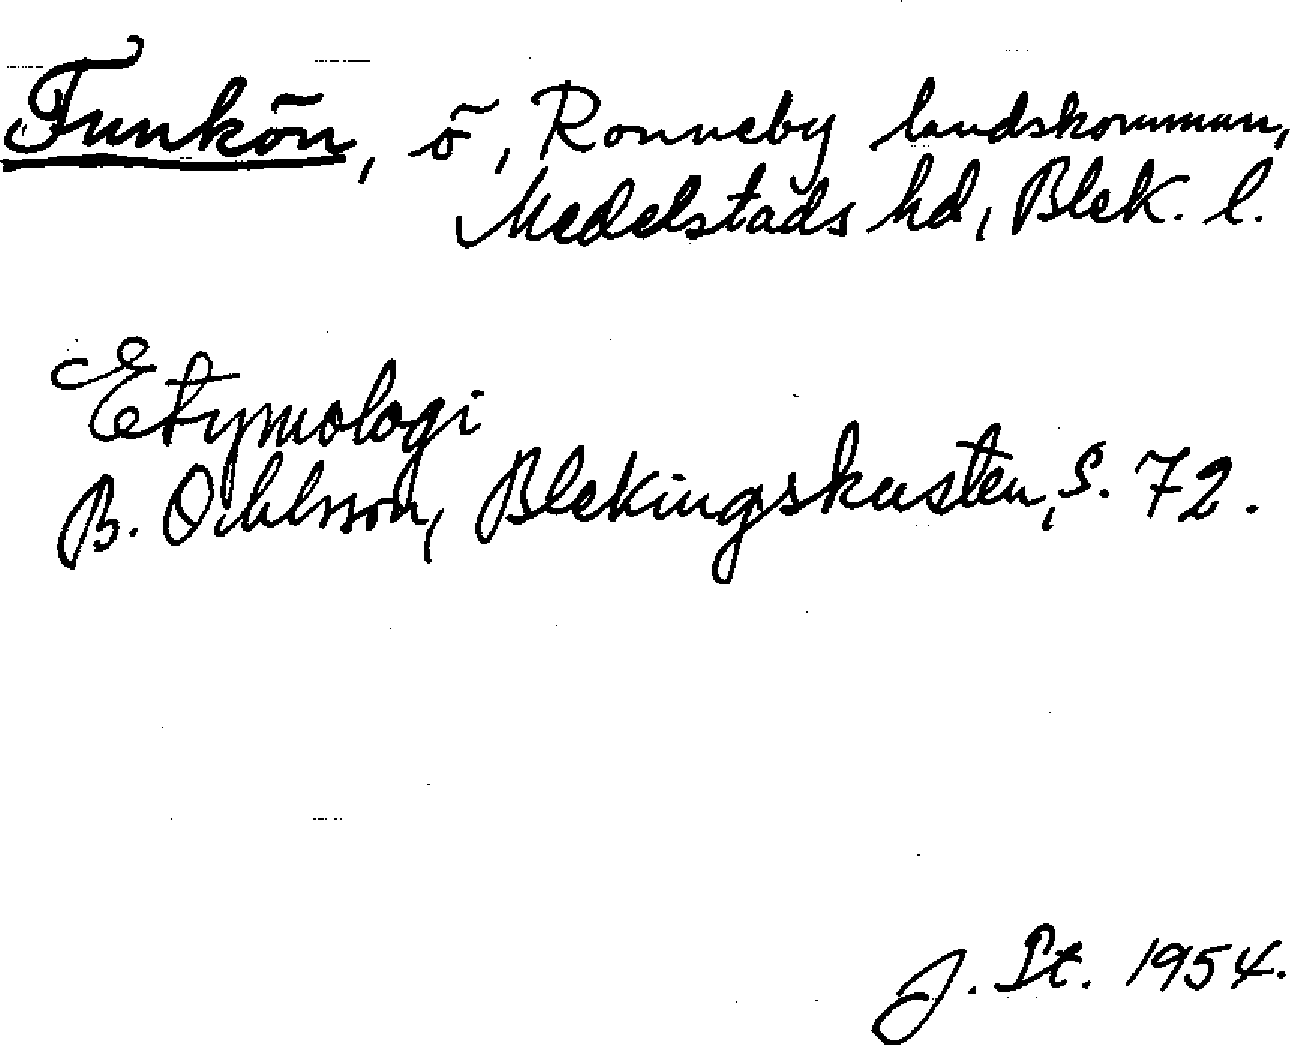 Funkön, ö, Ronneby landskommun,
Medelstads hd, Blek. l.
Etymologi
B. Ohlsson, Blekingskusten, s. 72.
J. St. 1954.